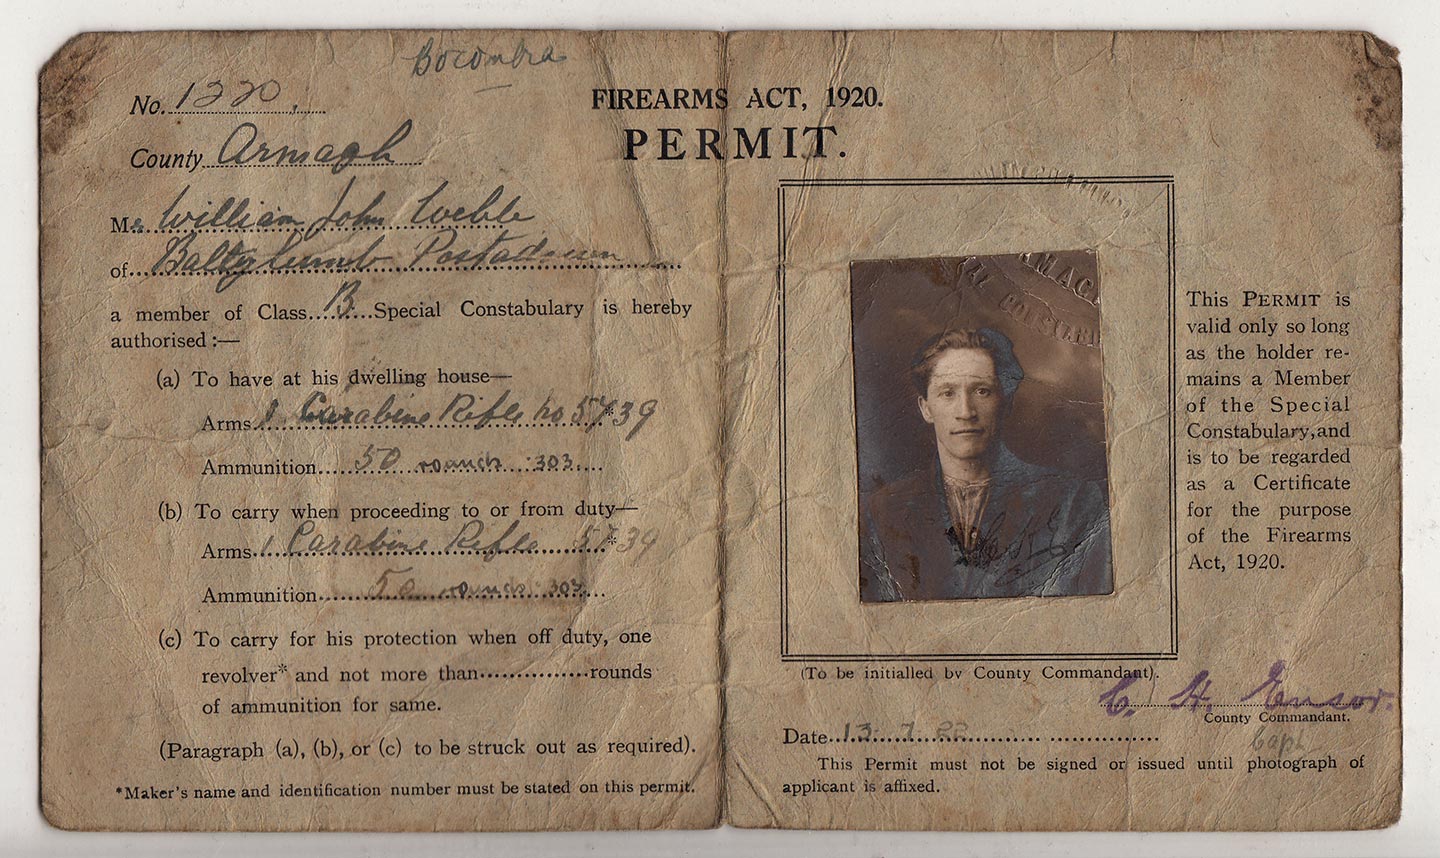 Bocombra
No. 1220.
County Armagh
FIREARMS ACT, 1920.
PERMIT.
Mr William John Webb
of Portadown
a member of Class B Special Constabulary is hereby
authorised :—
(a) To have at his dwelling house—
Arms 1 Carabine Rifle no 5739
Ammunition 50 rounds .303
(b) To carry when proceeding to or from duty—
Arms 1 Carabine Rifle 5739
Ammunition 50 rounds .303
(c) To carry for his protection when off duty, one
revolver* and not more than...............rounds
of ammunition for same.
(Paragraph (a), (b), or (c) to be struck out as required).
*Maker's name and identification number must be stated on this permit.
This PERMIT is
valid only so long
as the holder re-
mains a Member
of the Special
Constabulary, and
is to be regarded
as a Certificate
for the purpose
of the Firearms
Act, 1920.
(To be initialled by County Commandant).
C. H. Ensor.
County Commandant.
Capt
Date 13.7.22
This Permit must not be signed or issued until photograph of
applicant is affixed.